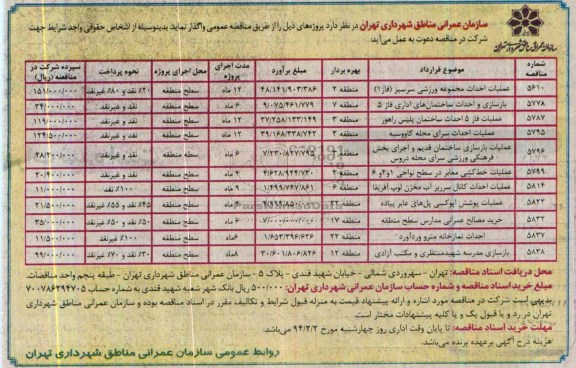 سازمان عمرانی مناطق شهرداری تهران در نظر دارد پروژه‌های ذیل را از طریق مناقصه عمومی واگذار نماید. بدینوسیله از اشخاص حقوقی واجد شرایط جهت
شرکت در مناقصه دعوت به عمل می‌آید:
شماره مناقصه موضوع قرارداد بهره بردار مبلغ برآورد مدت اجرای پروژه محل اجرای پروژه نحوه پرداخت سپرده شرکت در مناقصه (ریال)
۵۶۱۰ عملیات احداث مجموعه ورزشی سرسبز (فاز۱) منطقه ۲ ۴۸/۱۴۱/۹۰۳/۳۸۶ ۱۲ ماه سطح منطقه ۲۰٪ نقد و ۸۰٪ غیرنقد ۱۵۱/۰۰۰/۰۰۰
۵۷۷۸ بازسازی و احداث ساختمان‌های اداری فاز ۵ منطقه ۷ ۹/۰۷۵/۴۶۱/۷۷۹ ۶ ماه سطح منطقه نقد و غیرنقد ۳۴/۰۰۰/۰۰۰
۵۷۸۷ عملیات فاز ۵ احداث ساختمان پلیس راهور منطقه ۳ ۳۷/۲۵۸/۱۳۳/۱۴۹ ۱۲ ماه سطح منطقه نقد و غیرنقد ۱۱۹/۰۰۰/۰۰۰
۵۷۹۵ عملیات احداث سرای محله کاووسیه منطقه ۳ ۳۹/۱۶۸/۳۳۸/۷۴۲ ۱۲ ماه سطح منطقه نقد و غیرنقد ۱۲۴/۵۰۰/۰۰۰
۵۷۹۶ عملیات بازسازی ساختمان قدیم و اجرای بخش
فرهنگی ورزشی سرای محله دروس منطقه ۳ ۷/۲۳۰/۸۲۷/۷۹۲ ۶ ماه سطح منطقه نقد و غیرنقد ۲۸/۲۰۰/۰۰۰
۵۷۹۹ عملیات خط‌کشی معابر در سطح نواحی ۱و۲و ۶ ۴/۶۲۸/۹۴۴/۷۳۰ سطح منطقه نقد و غیرنقد ۲۰/۴۰۰/۰۰۰
۵۸۱۴ عملیات احداث کانال سرریز آب مخزن لوپ آفریقا منطقه ۶ ۱/۴۹۹/۷۴۷/۸۶۱ سطح منطقه ۱۰۰٪ نقد ۱۱/۰۰۰/۰۰۰
۵۸۲۲ عملیات پوشش اپوکسی پل‌های عابر پیاده منطقه سطح منطقه ۴۵٪ نقد و ۵۵٪ غیرنقد ۲۱/۵۰۰/۰۰۰
۵۸۳۲ خرید مصالح عمرانی مدارس سطح منطقه منطقه ۱۷ سطح منطقه ۵۰٪ نقد و ۵۰٪ غیرنقد ۳۵/۰۰۰/۰۰۰
۵۸۳۷ احداث نمازخانه مترو وردآورد منطقه ۲۲ ۱/۶۵۳/۳۹۶/۶۲۶ ۶ماه سطح منطقه ۱۰۰٪ غیرنقد ۱۱/۵۰۰/۰۰۰
۵۸۳۸ بازسازی مدرسه شهیدمنتظری و مکتب آزادی منطقه ۱۲ ۳۰/۶۰۱/۸۰۶/۸۲۶ ۸ماه سطح منطقه ۳۰٪ نقد و ۷۰٪ غیرنقد ۹۹/۰۰۰/۰۰۰
محل دریافت اسناد مناقصه: تهران - سهروردی شمالی - خیابان شهید قندی - پلاک ۵ - سازمان عمرانی مناطق شهرداری تهران - طبقه پنجم واحد مناقصات.
مبلغ خرید اسناد مناقصه و شماره حساب سازمان عمرانی مناطق شهرداری تهران: ۵۰۰/۰۰۰ ریال بانک شهر شعبه شهید قندی به شماره حساب ۷۰۰۷۸۶۲۹۴۷۰۵
بدیهی است شرکت در مناقصه مورد اشاره و ارائه پیشنهاد قیمت به منزله قبول شرایط و تکالیف مقرر در اسناد مناقصه بوده و سازمان عمرانی مناطق شهرداری
تهران در رد و یا قبول یک و یا کلیه پیشنهادات مختار است.
مهلت خرید اسناد مناقصه: تا پایان وقت اداری روز چهارشنبه مورخ ۹۴/۲/۲ می‌باشد.
هزینه درج آگهی برعهده برنده می‌باشد.
روابط عمومی سازمان عمرانی مناطق شهرداری تهران